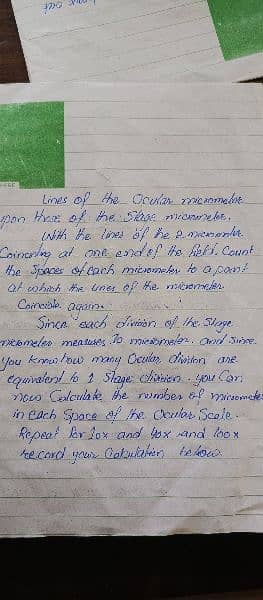 Lines of the Ocular micrometer
upon those of the Stage micrometer.
With the lines of the 2 micrometer
Coinciding at one end of the field. Count
the Spaces of each micrometer to a point
at which the lines of the micrometer
Coincide again.
Since each division of the Stage
micrometer measures 10 micrometer. and Since
You know how many Ocular division are
equivalent to 1 Stage division. you Can
now Calculate the number of micrometer
in each Space of the Ocular Scale.
Repeat for 10x and 40x and 100x
record your Calculation below.